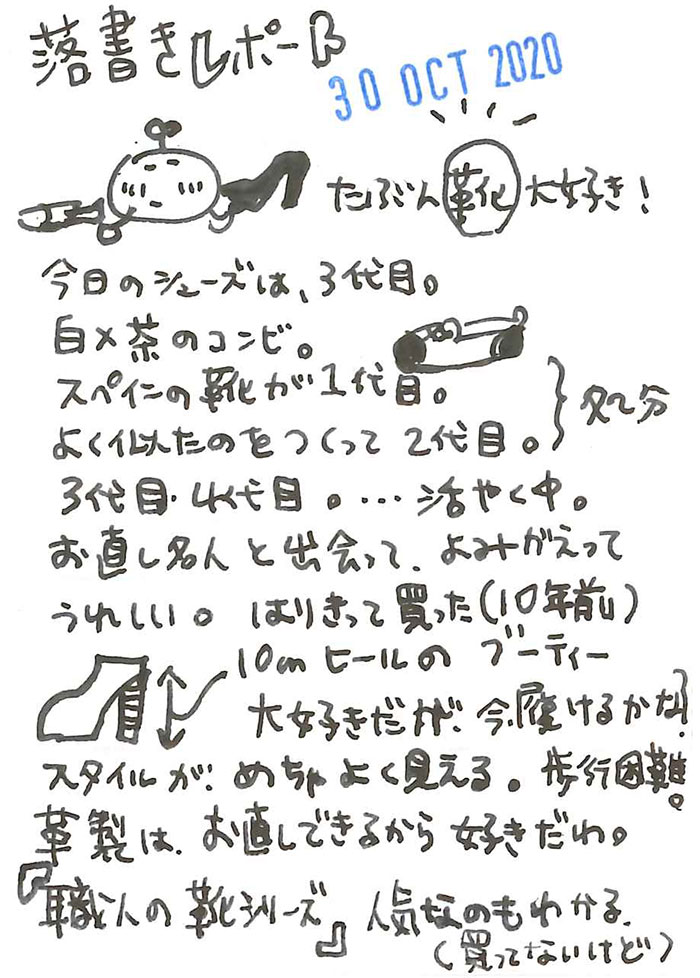 落書きレポート
30 OCT 2020
たぶん靴大好き！
今日のシューズは、3代目。
白×茶のコンビ。
スペインの靴が1代目。
よく似たのをつくって 2代目。 } 処分
3代目・4代目。…活やく中。
お直し名人と出会って、よみがえって
うれしい。 はりきって買った(10年前)
10cmヒールの ブーティー
大好きだが、今、履けるかな？
スタイルが、めちゃよく見える。歩行困難。
革製は、お直しできるから好きだわ。
『職人の靴シリーズ』人気なのもわかる、
(買ってないけど)